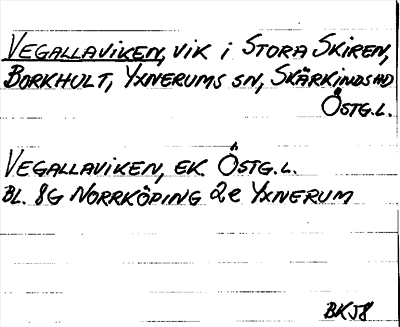 VEGALLAVIKEN, VIK I STORA SKIREN,
BORKHULT, YXNERUMS SN, SKÄRKINDS HD
ÖSTG.L.
VEGALLAVIKEN, EK. ÖSTG.L.
BL. 8G NORRKÖPING 2e YXNERUM
BKJ8